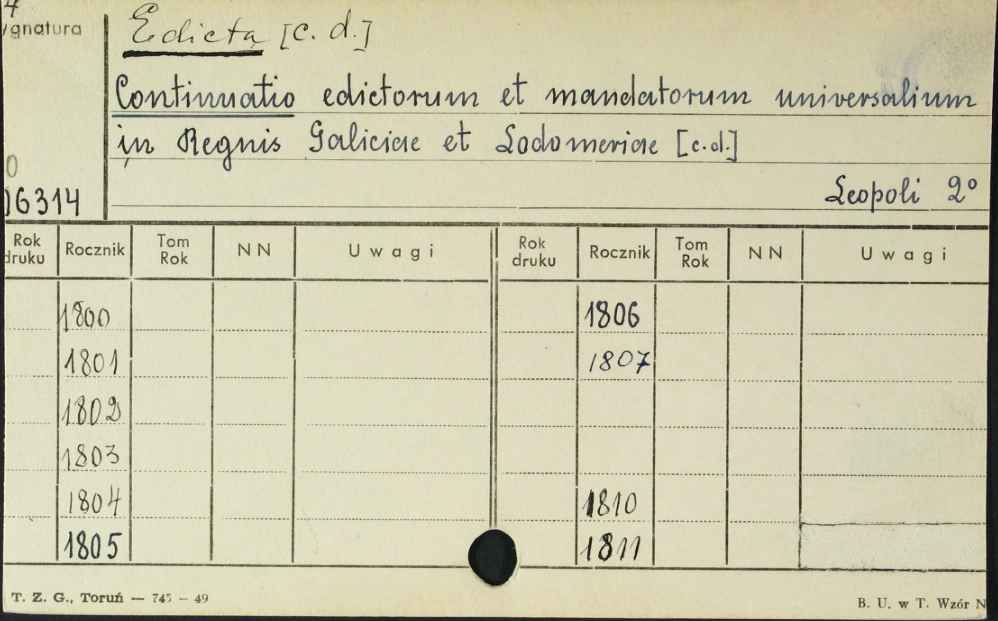 4
ygnatura
Edicta [c. d.]
Continuatio edictorum et mandatorum universalium
in Regnis Galiciae et Lodomeriae [c.d.]
0
06314
Leopoli 2°
Rok druku Rocznik Tom Rok NN Uwagi Rok druku Rocznik Tom Rok NN Uwagi
1800 1806
1801 1807
1802
1803
1804 1810
1805 1811
T. Z. G., Toruń — 745 — 49
B. U. w T. Wzór N